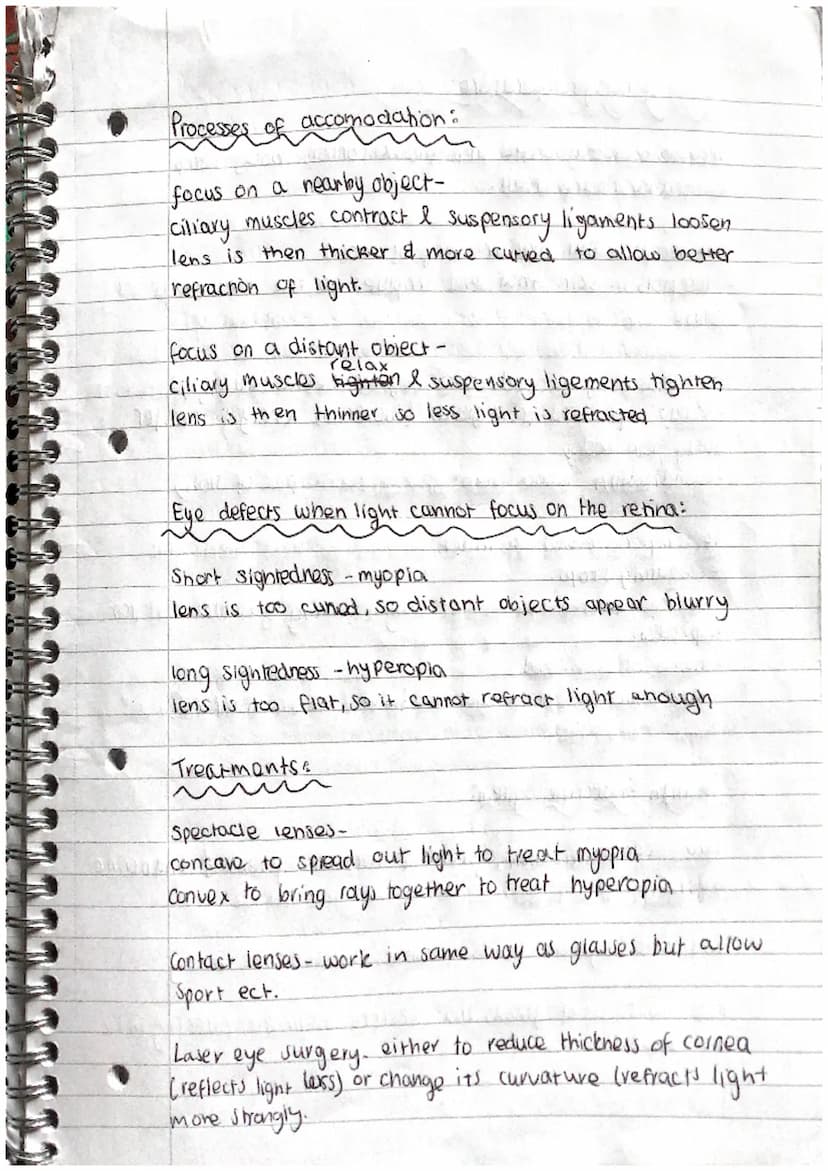 Processes of accomodation:
focus on a nearby object-
ciliary muscles contract & suspensory ligaments loosen
lens is then thicker & more curved to allow better
refraction of light.
focus on a distant object -
relax
ciliary muscles tighten & suspensory ligements tighten
lens is then thinner so less light is refracted
Eye defects when light cannot focus on the retina:
Short sightedness - myopia
lens is too curved, so distant objects appear blurry
long sightedness - hyperopia
lens is too flat, so it cannot refract light enough
Treatments:
Spectacle lenses-
concave to spread out light to treat myopia
convex to bring rays together to treat hyperopia
Contact lenses- work in same way as glasses but allow
sport ect.
Laser eye surgery- either to reduce thickness of cornea
(reflects light less) or change its curvature (refracts light
more strongly.